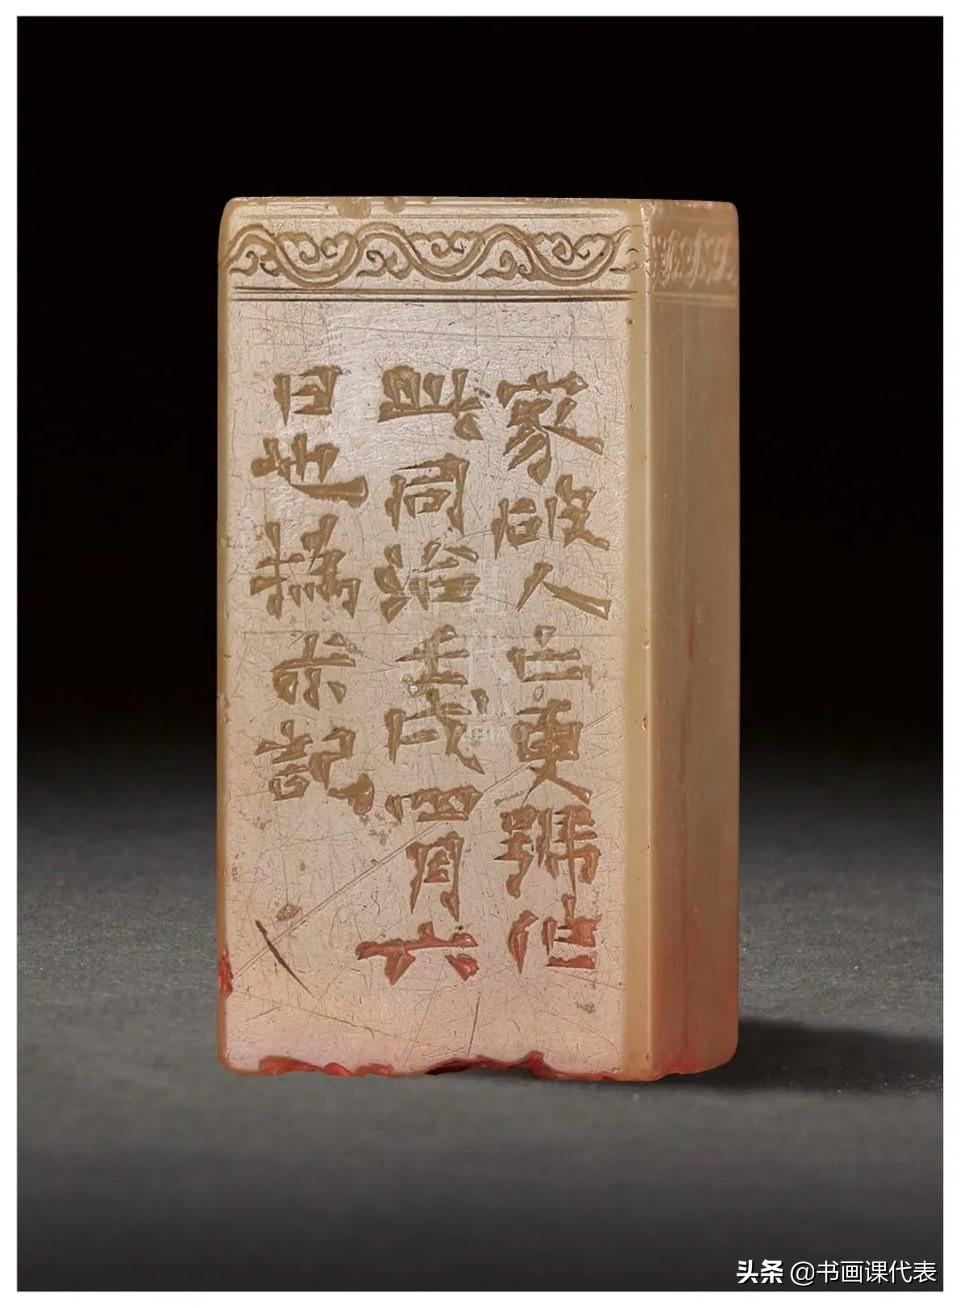 家破人亡更號作
此同治壬戌四月六
日也撝尗記
头条 @书画课代表